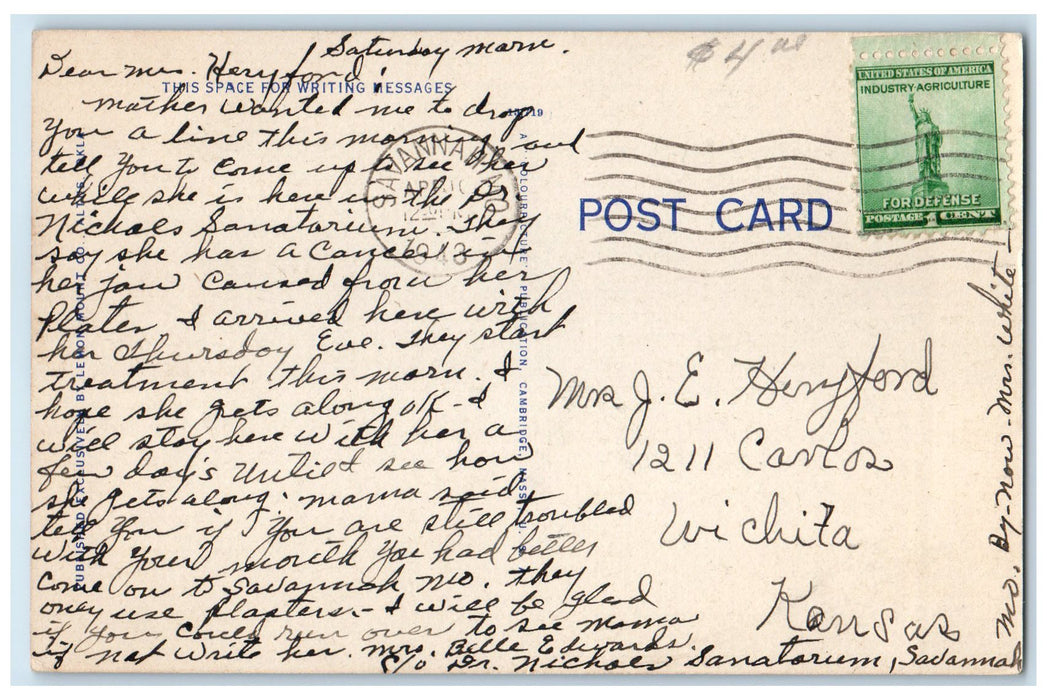 Saturday morn.
Dear Mrs. Heryford,
THIS SPACE FOR WRITING MESSAGES
Mother wanted me to drop
You a line this morning and
tell you to come up & see her
while she is here in the Dr
Nichols Sanatorium. They
say she has a Cancer in
her jaw caused from her
Plates. I arrived here with
her Thursday Eve. They start
treatment this morn. I
hope she gets along OK - I
will stay here with her a
few day's Until I see how
she gets along. Mama said
tell you if you are still troubled
with your mouth you had better
come on to Savannah Mo. They
only use Plasters. - I will be glad
if you could run over to see Mama
if not write her. Mrs. Belle Edwards.
c/o Dr. Nichols Sanatorium, Savannah
Mo. By-now - Mrs. White -
$4
SAVANNAH MO
APR 10
12
1943
UNITED STATES OF AMERICA
INDUSTRY·AGRICULTURE
FOR DEFENSE
POSTAGE 1 CENT
POST CARD
Mrs J. E. Heryford
1211 Carlos
Wichita
Kansas
PUBLISHED EXCLUSIVELY BELLEMOUNT CO.
PUBLICATION, CAMBRIDGE, MASS., U.